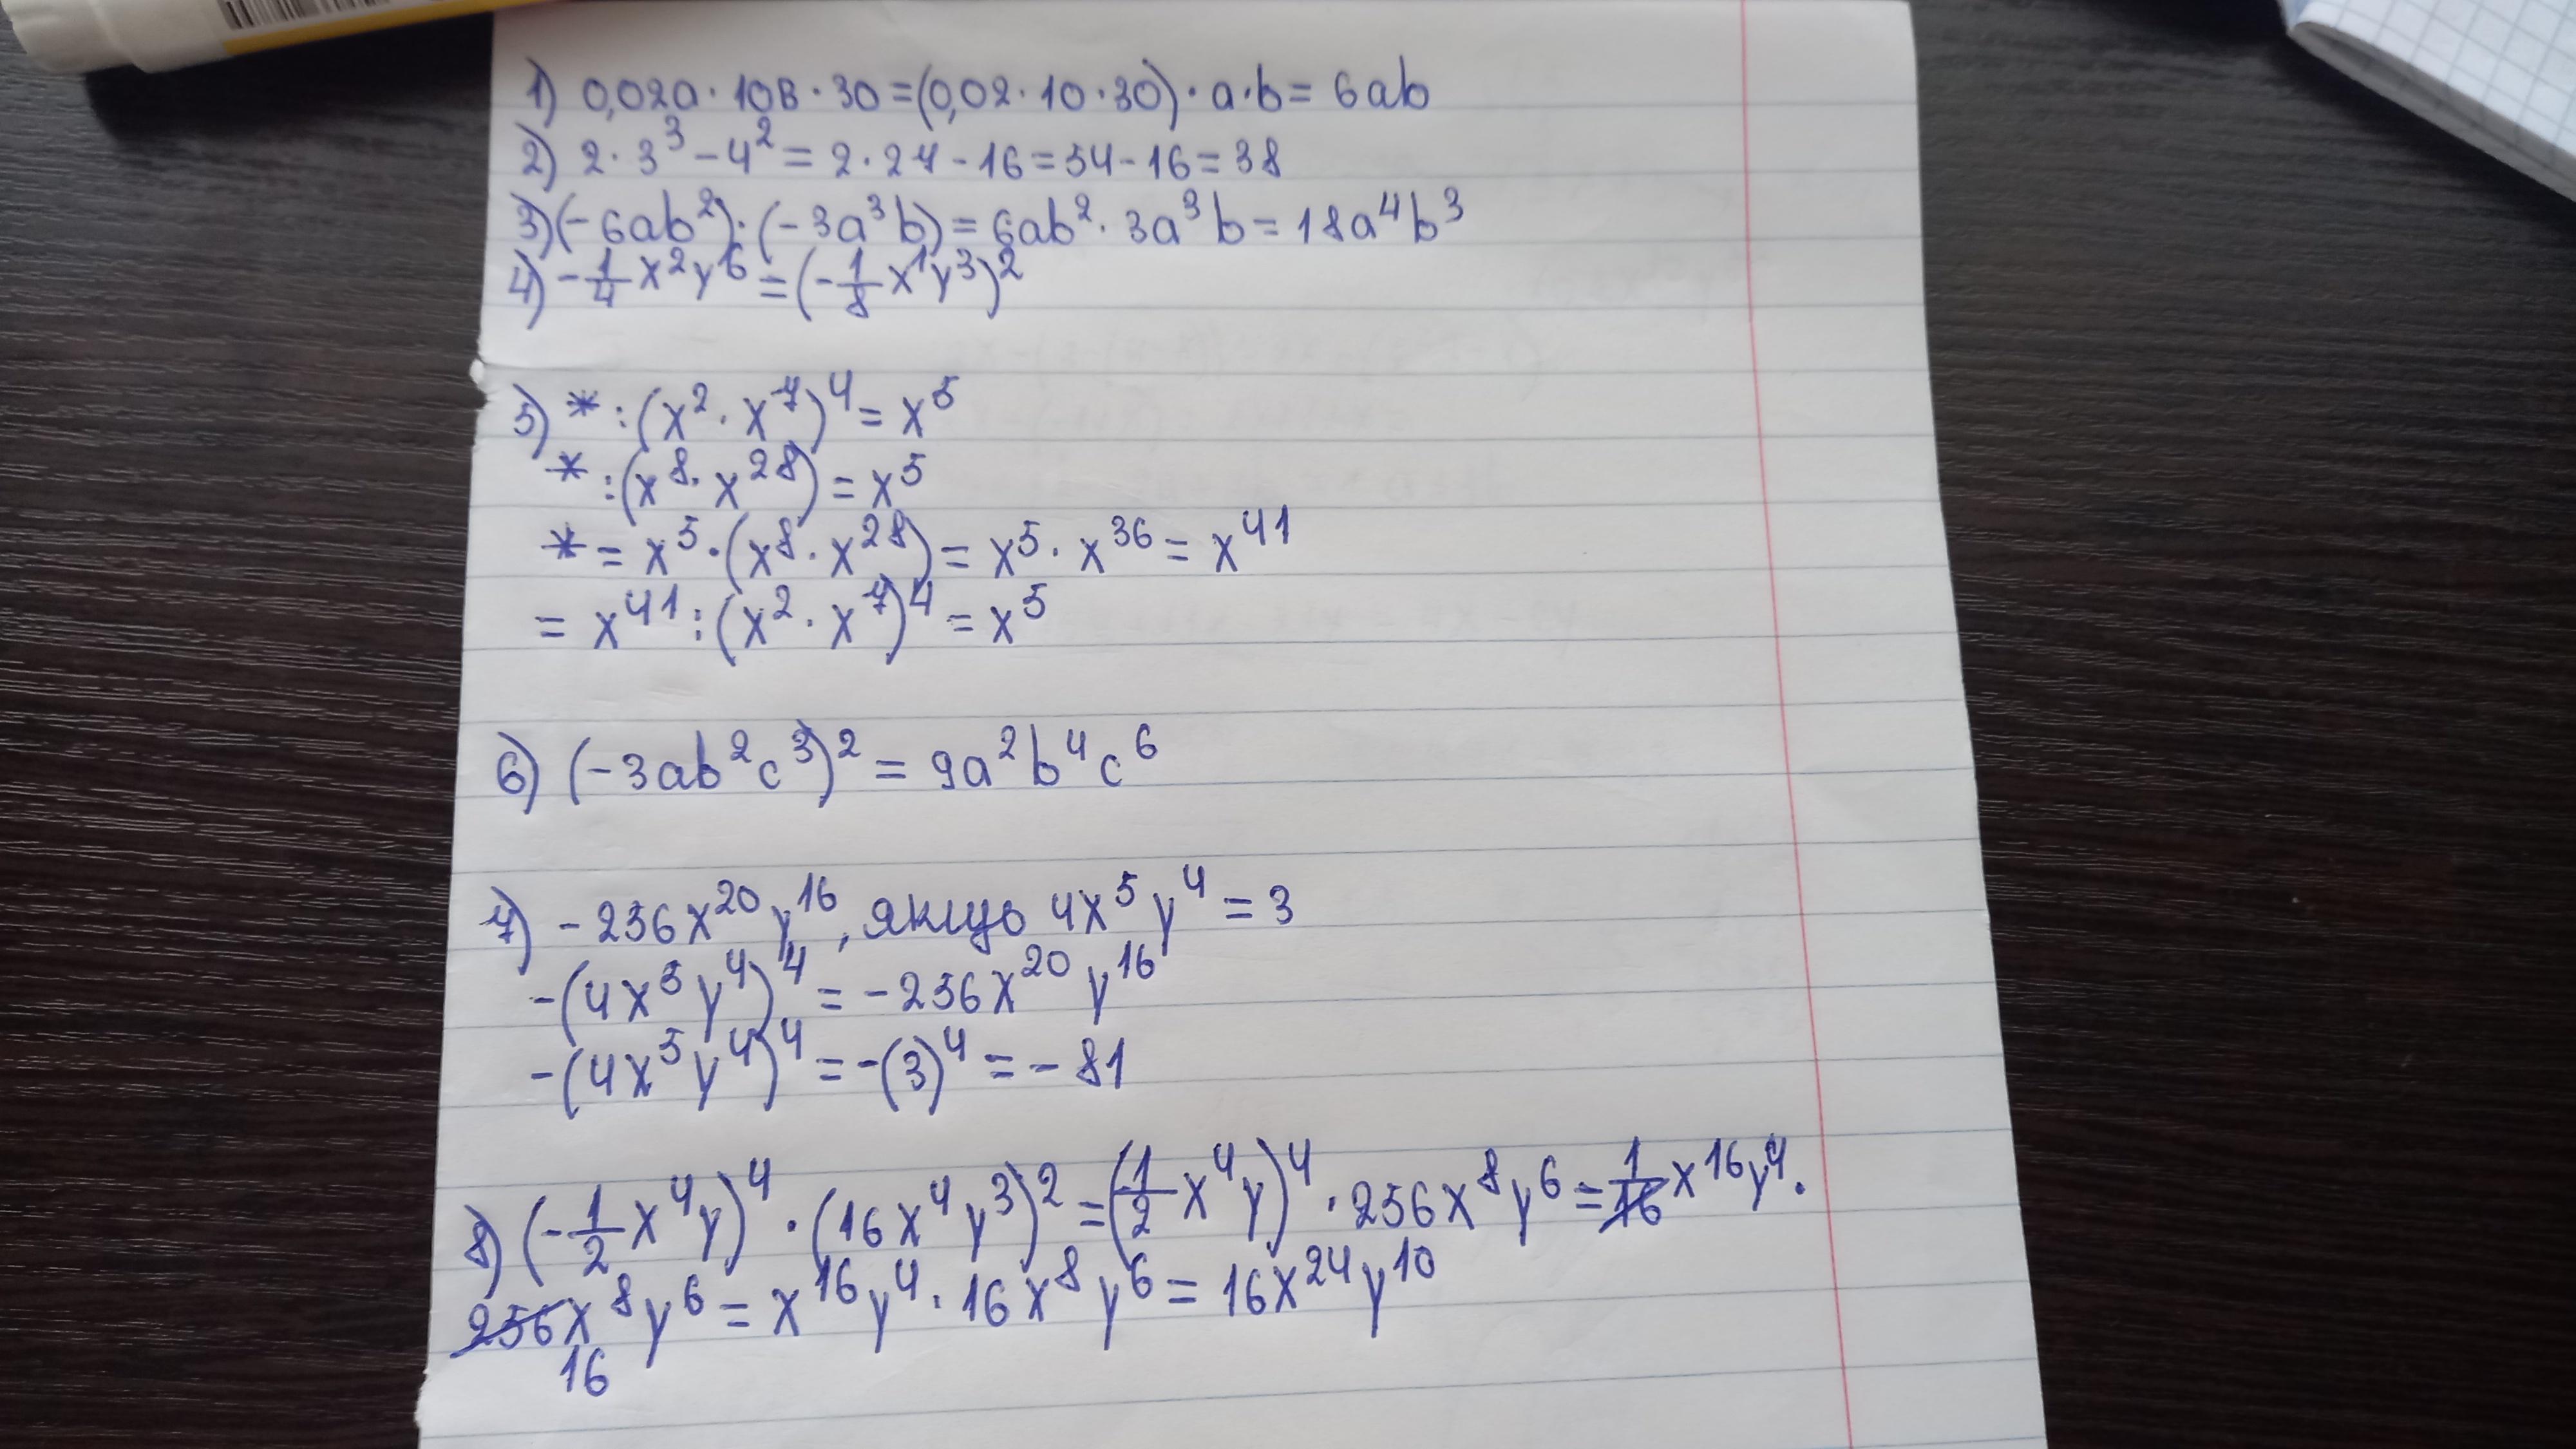 1) 0,02a · 10в · 30 = (0,02 · 10 · 30) · a · b = 6ab
2) 2 · 3³ − 4² = 2 · 27 − 16 = 54 − 16 = 38
3) (−6ab²) · (−3a³b) = 6ab² · 3a³b = 18a⁴b³
4) −1/4 x²y⁶ = (−1/8 x¹y³)²
5) * : (x² · x⁷)⁴ = x⁵
* : (x⁸ · x²⁸) = x⁵
* = x⁵ · (x⁸ · x²⁸) = x⁵ · x³⁶ = x⁴¹
= x⁴¹ : (x² · x⁷)⁴ = x⁵
6) (−3ab²c³)² = 9a²b⁴c⁶
7) −256x²⁰y¹⁶, якщо 4x⁵y⁴ = 3
−(4x⁵y⁴)⁴ = −256x²⁰y¹⁶
−(4x⁵y⁴)⁴ = −(3)⁴ = −81
8) (−1/2 x⁴y)⁴ · (16x⁴y³)² = (1/2 x⁴y)⁴ · 256x⁸y⁶ = 1/16 x¹⁶y⁴ ·
256x⁸y⁶ = x¹⁶y⁴ · 16x⁸y⁶ = 16x²⁴y¹⁰
16